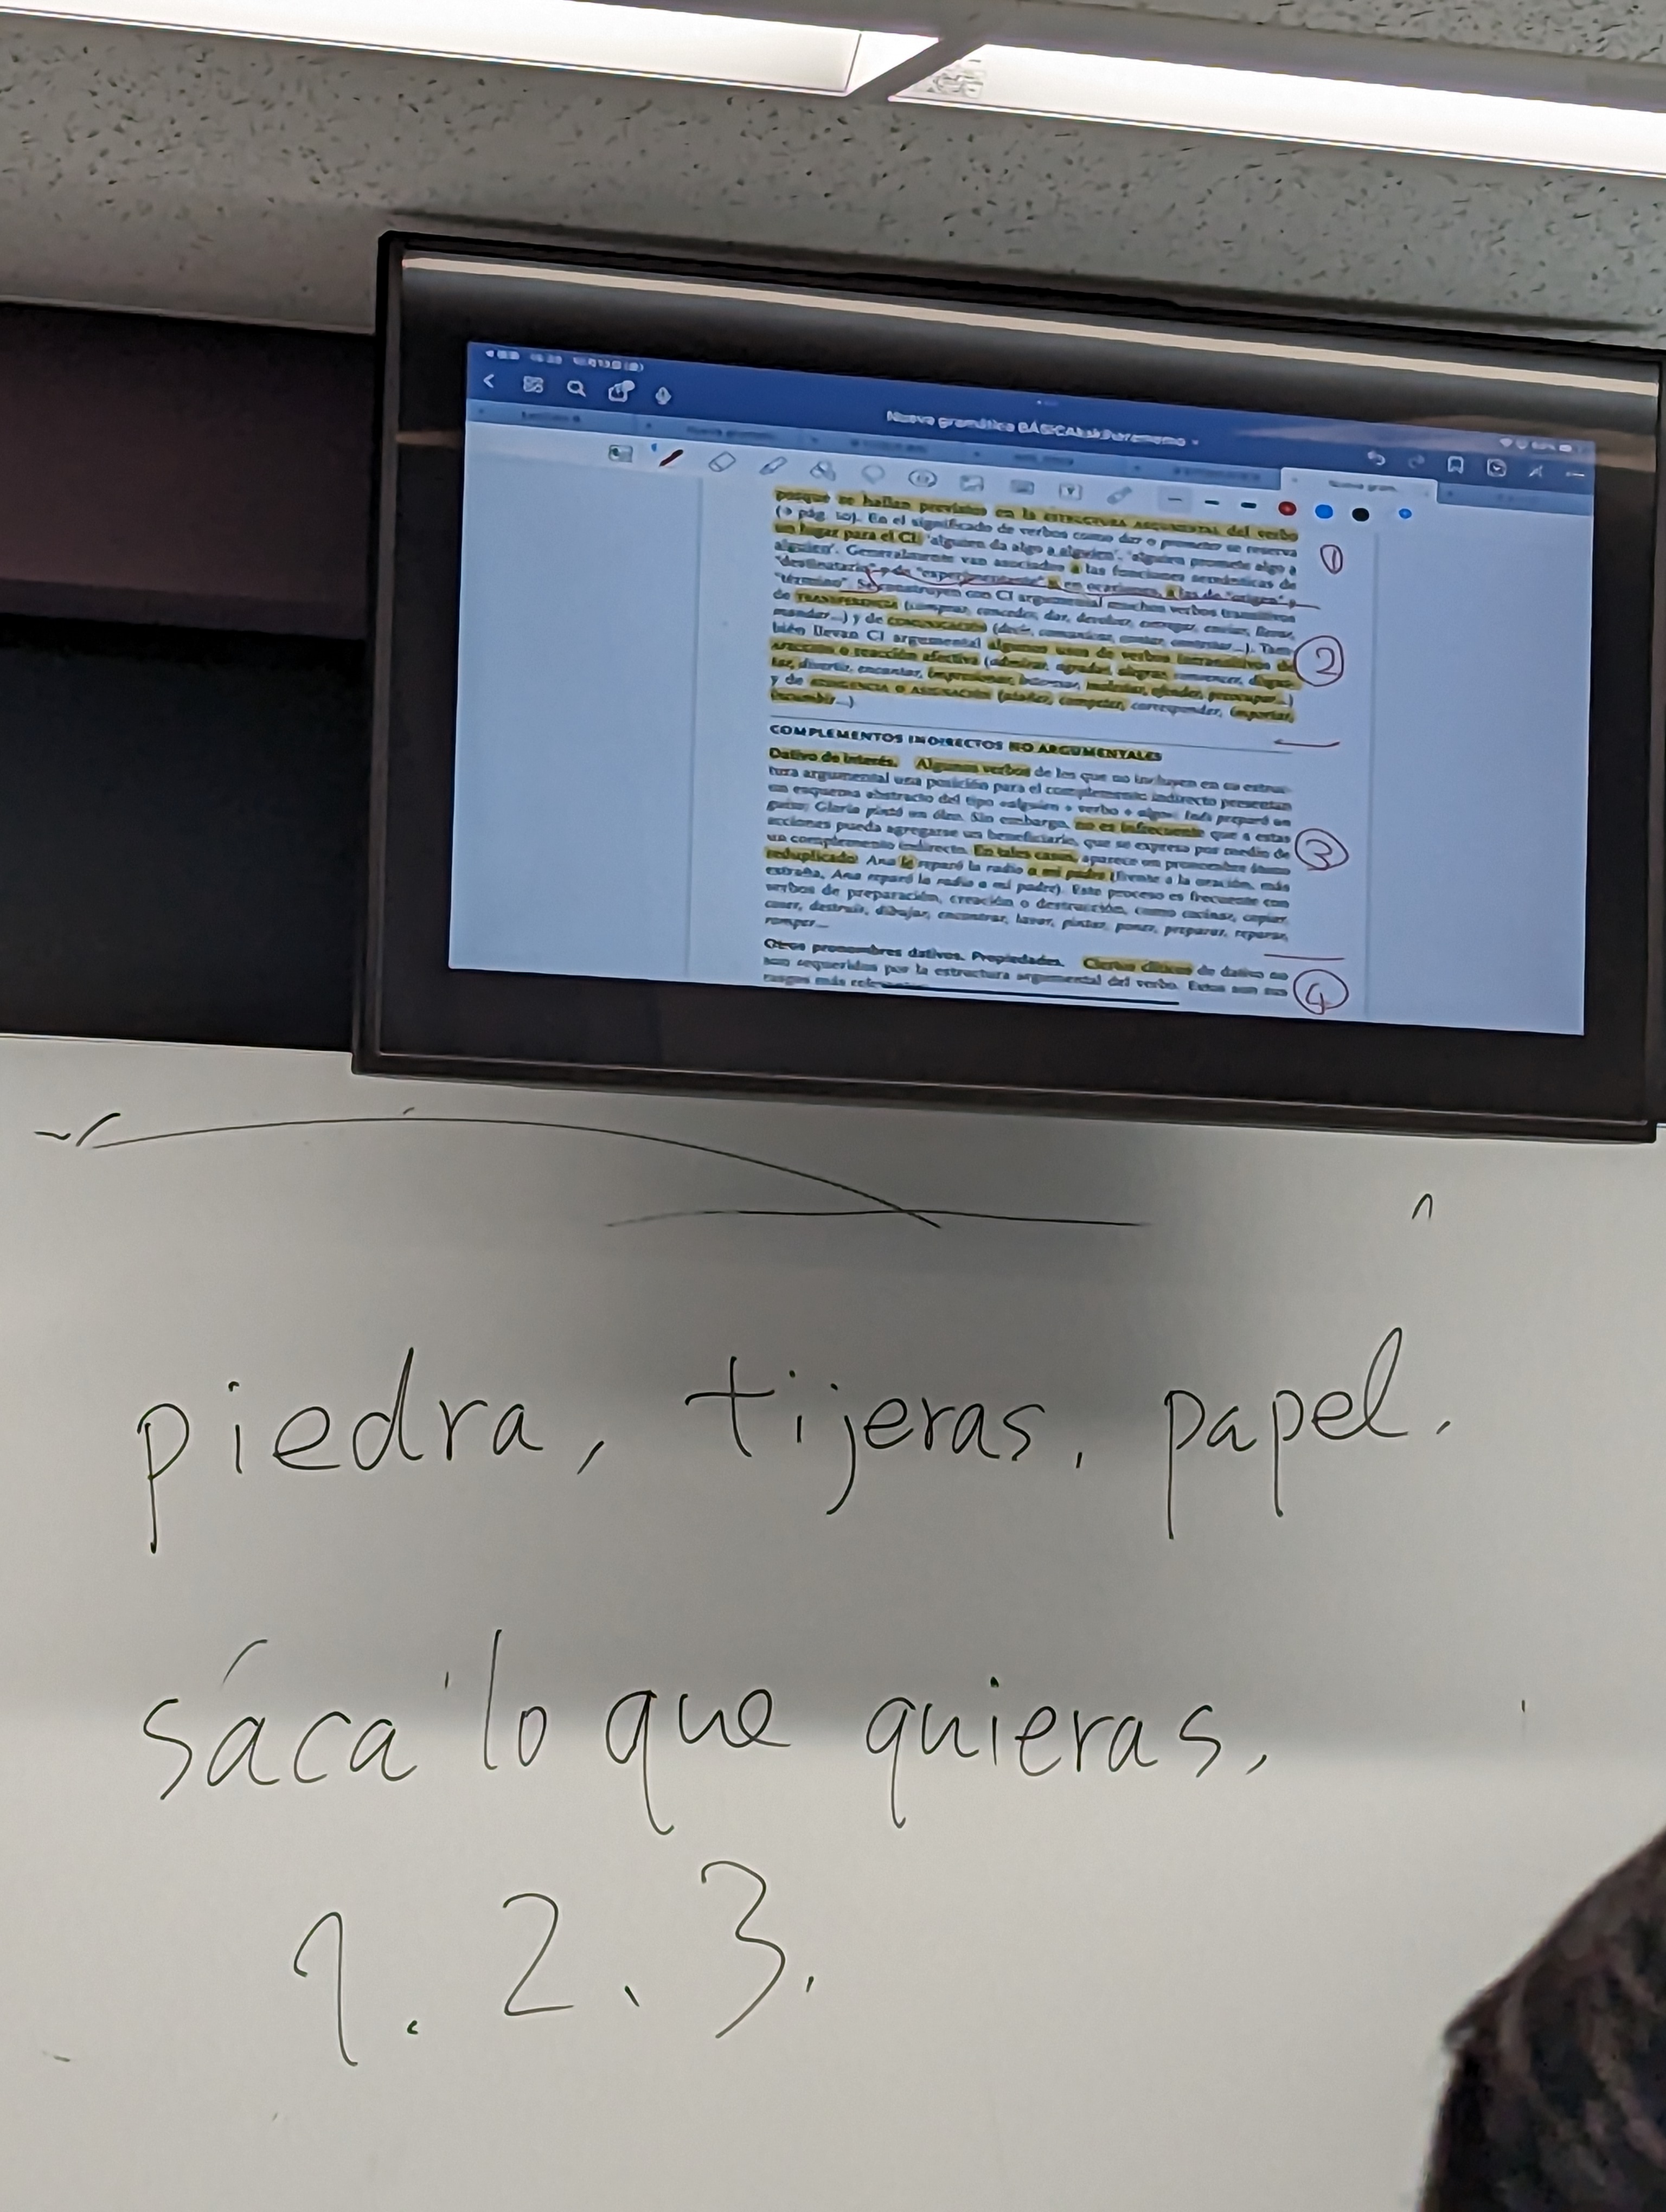 Nueva gramática BÁSICA
porque se hallan previstos en la ESTRUCTURA ARGUMENTAL del verbo
(→ pág. 10). En el significado de verbos como dar o prometer se reserva
un lugar para el CI: 'alguien da algo a alguien', 'alguien promete algo a
alguien'. Generalmente van asociados a las funciones semánticas de
"destinatario" y de "experimentante" y, en ocasiones, a las de "origen" y
"término". Se construyen con CI argumental muchos verbos transitivos
de TRANSFERENCIA (comprar, conceder, dar, devolver, entregar, enviar, llevar,
mandar...) y de COMUNICACIÓN (decir, comunicar, contar,
bién llevan CI argumental algunos usos de verbos intransitivos de
AFECCIÓN o reacción afectiva
divertir, encantar, impresionar, interesar, molestar, ofender, preocupar...)
y de (atañer, competer, corresponder, importar,
incumbir...)
①
②
COMPLEMENTOS INDIRECTOS NO ARGUMENTALES
Dativo de interés. Algunos verbos de los que no incluyen en su estruc-
tura argumental una posición para el complemento indirecto presentan
un esquema abstracto del tipo «alguien + verbo + algo»: Inés preparó un
guiso; Gloria pintó un óleo. Sin embargo, no es infrecuente que a estas
acciones pueda agregarse un beneficiario, que se expresa por medio de
un complemento indirecto. En tales casos, aparece un pronombre átono
reduplicado: Ana le reparó la radio a mi padre (frente a la oración, más
extraña, Ana reparó la radio a mi padre). Este proceso es frecuente con
verbos de preparación, creación o destrucción, como cocinar, copiar,
coser, destruir, dibujar, encontrar, lavar, pintar, poner, preparar, reparar,
romper...
③
Otros pronombres dativos. Propiedades. Ciertos clíticos de dativo no
son requeridos por la estructura argumental del verbo. Estos son sus
rasgos más
④
piedra, tijeras, papel.
sáca lo que quieras,
1. 2. 3.